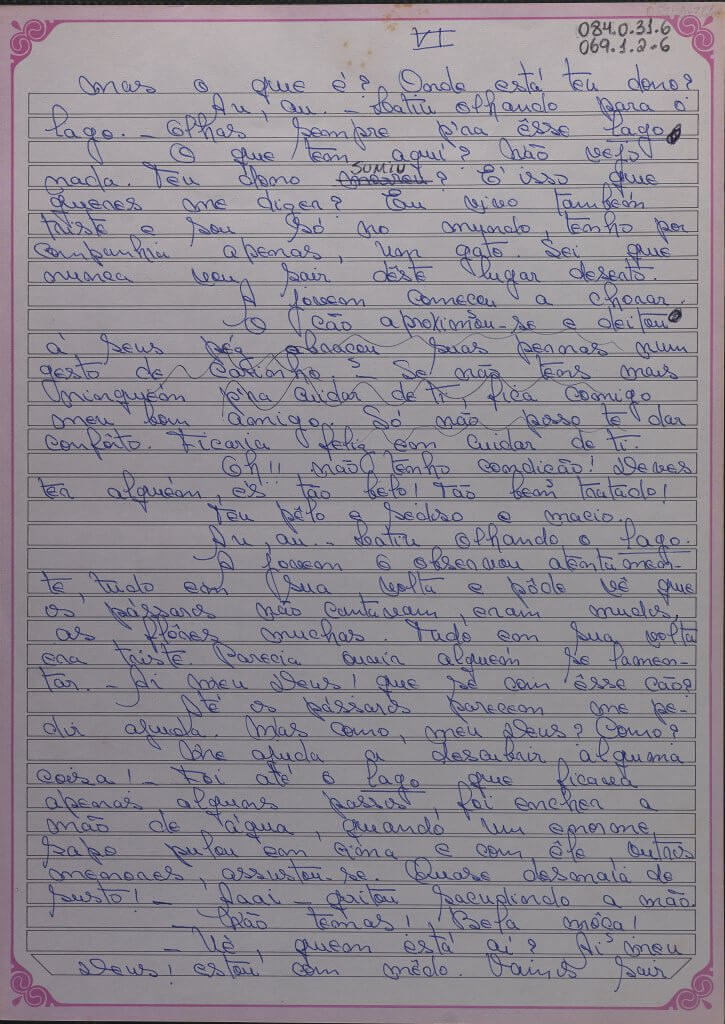 VI
084.0.31.6
069.1.2-6
mas o que é? Onde está teu dono?
Au, au. - Latiu olhando para o
lago. - Olhas sempre p'ra êsse lago.
O que tem aqui? Não vejo
nada. Teu dono sumiu? É isso que
queres me dizer? Eu vivo também
triste e sou só no mundo, tenho por
companhia apenas, um gato. Sei que
nunca vou sair dêste lugar deserto.
A jovem começou a chorar.
O cão aproximou-se e deitou
à seus pés, abraçou suas pernas num
gesto de carinho. - Se não tens mais
ninguém p'ra cuidar de ti, fica comigo
meu bom amigo. Só não posso te dar
confôrto. Ficaria feliz em cuidar de ti.
Oh!! não tenho condição! Deves
ter alguém, és tão belo! Tão bem tratado!
Teu pêlo e sedoso e macio.
Au, au... Latiu olhando o lago.
A jovem o observou atentamen-
te, tudo em sua volta e pôde vê que
os pássaros não cantavam, eram mudos,
as flôres muchas. Tudo em sua volta
era triste. Parecia ouvir alguém se lamen-
tar. - Ai meu Deus! que sê com êsse cão?
Até os pássaros parecem me pe-
dir ajuda. Mas como, meu Deus? Como?
Me ajuda a descubrir alguma
coisa! - Foi até o lago que ficava
apenas alguns passos, foi encher a
mão de água, quando um enorme
sapo pulou em cima e com êle outros
menores, assustou-se. Quase desmaia de
susto! - Aaai - gritou sacudindo a mão.
- Não temas! Bela môça!
- Vê, quem está aí? Ai meu
Deus! estou com mêdo. Vamos sair